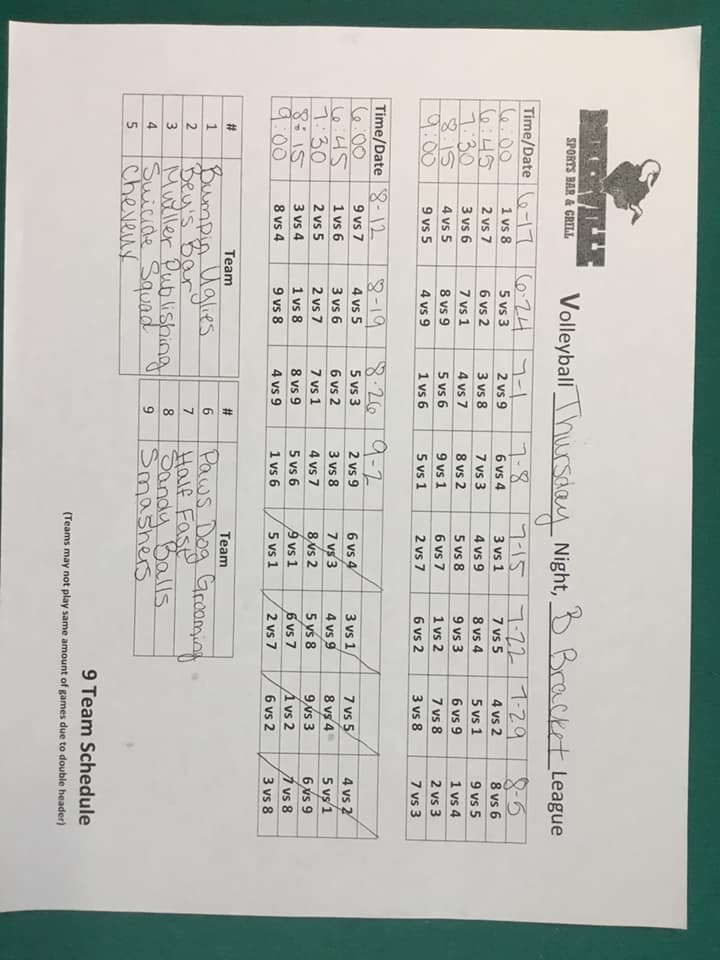 SPORTS BAR & GRILL
Volleyball Thursday Night, B Bracket League
Time/Date 6-17 6-24 7-1 7-8 7-15 7-22 7-29 8-5
6:00 1 vs 8 5 vs 3 2 vs 9 6 vs 4 3 vs 1 7 vs 5 4 vs 2 8 vs 6
6:45 2 vs 7 6 vs 2 3 vs 8 7 vs 3 4 vs 9 8 vs 4 5 vs 1 9 vs 5
7:30 3 vs 6 7 vs 1 4 vs 7 8 vs 2 5 vs 8 9 vs 3 6 vs 9 1 vs 4
8:15 4 vs 5 8 vs 9 5 vs 6 9 vs 1 6 vs 7 1 vs 2 7 vs 8 2 vs 3
9:00 9 vs 5 4 vs 9 1 vs 6 5 vs 1 2 vs 7 6 vs 2 3 vs 8 7 vs 3
Time/Date 8-12 8-19 8-26 9-2
6:00 9 vs 7 4 vs 5 5 vs 3 2 vs 9 6 vs 4 3 vs 1 7 vs 5 4 vs 2
6:45 1 vs 6 3 vs 6 6 vs 2 3 vs 8 7 vs 3 4 vs 9 8 vs 4 5 vs 1
7:30 2 vs 5 2 vs 7 7 vs 1 4 vs 7 8 vs 2 5 vs 8 9 vs 3 6 vs 9
8:15 3 vs 4 1 vs 8 8 vs 9 5 vs 6 9 vs 1 6 vs 7 1 vs 2 7 vs 8
9:00 8 vs 4 9 vs 8 4 vs 9 1 vs 6 5 vs 1 2 vs 7 6 vs 2 3 vs 8
# Team # Team
1 Bumpin Uglies 6 Paws Dog Grooming
2 Bev's Bar 7 Half Fast
3 Mueller Publishing 8 Sandy Balls
4 Suicide Squad 9 Smashers
5 Cheveux
9 Team Schedule
(Teams may not play same amount of games due to double header)